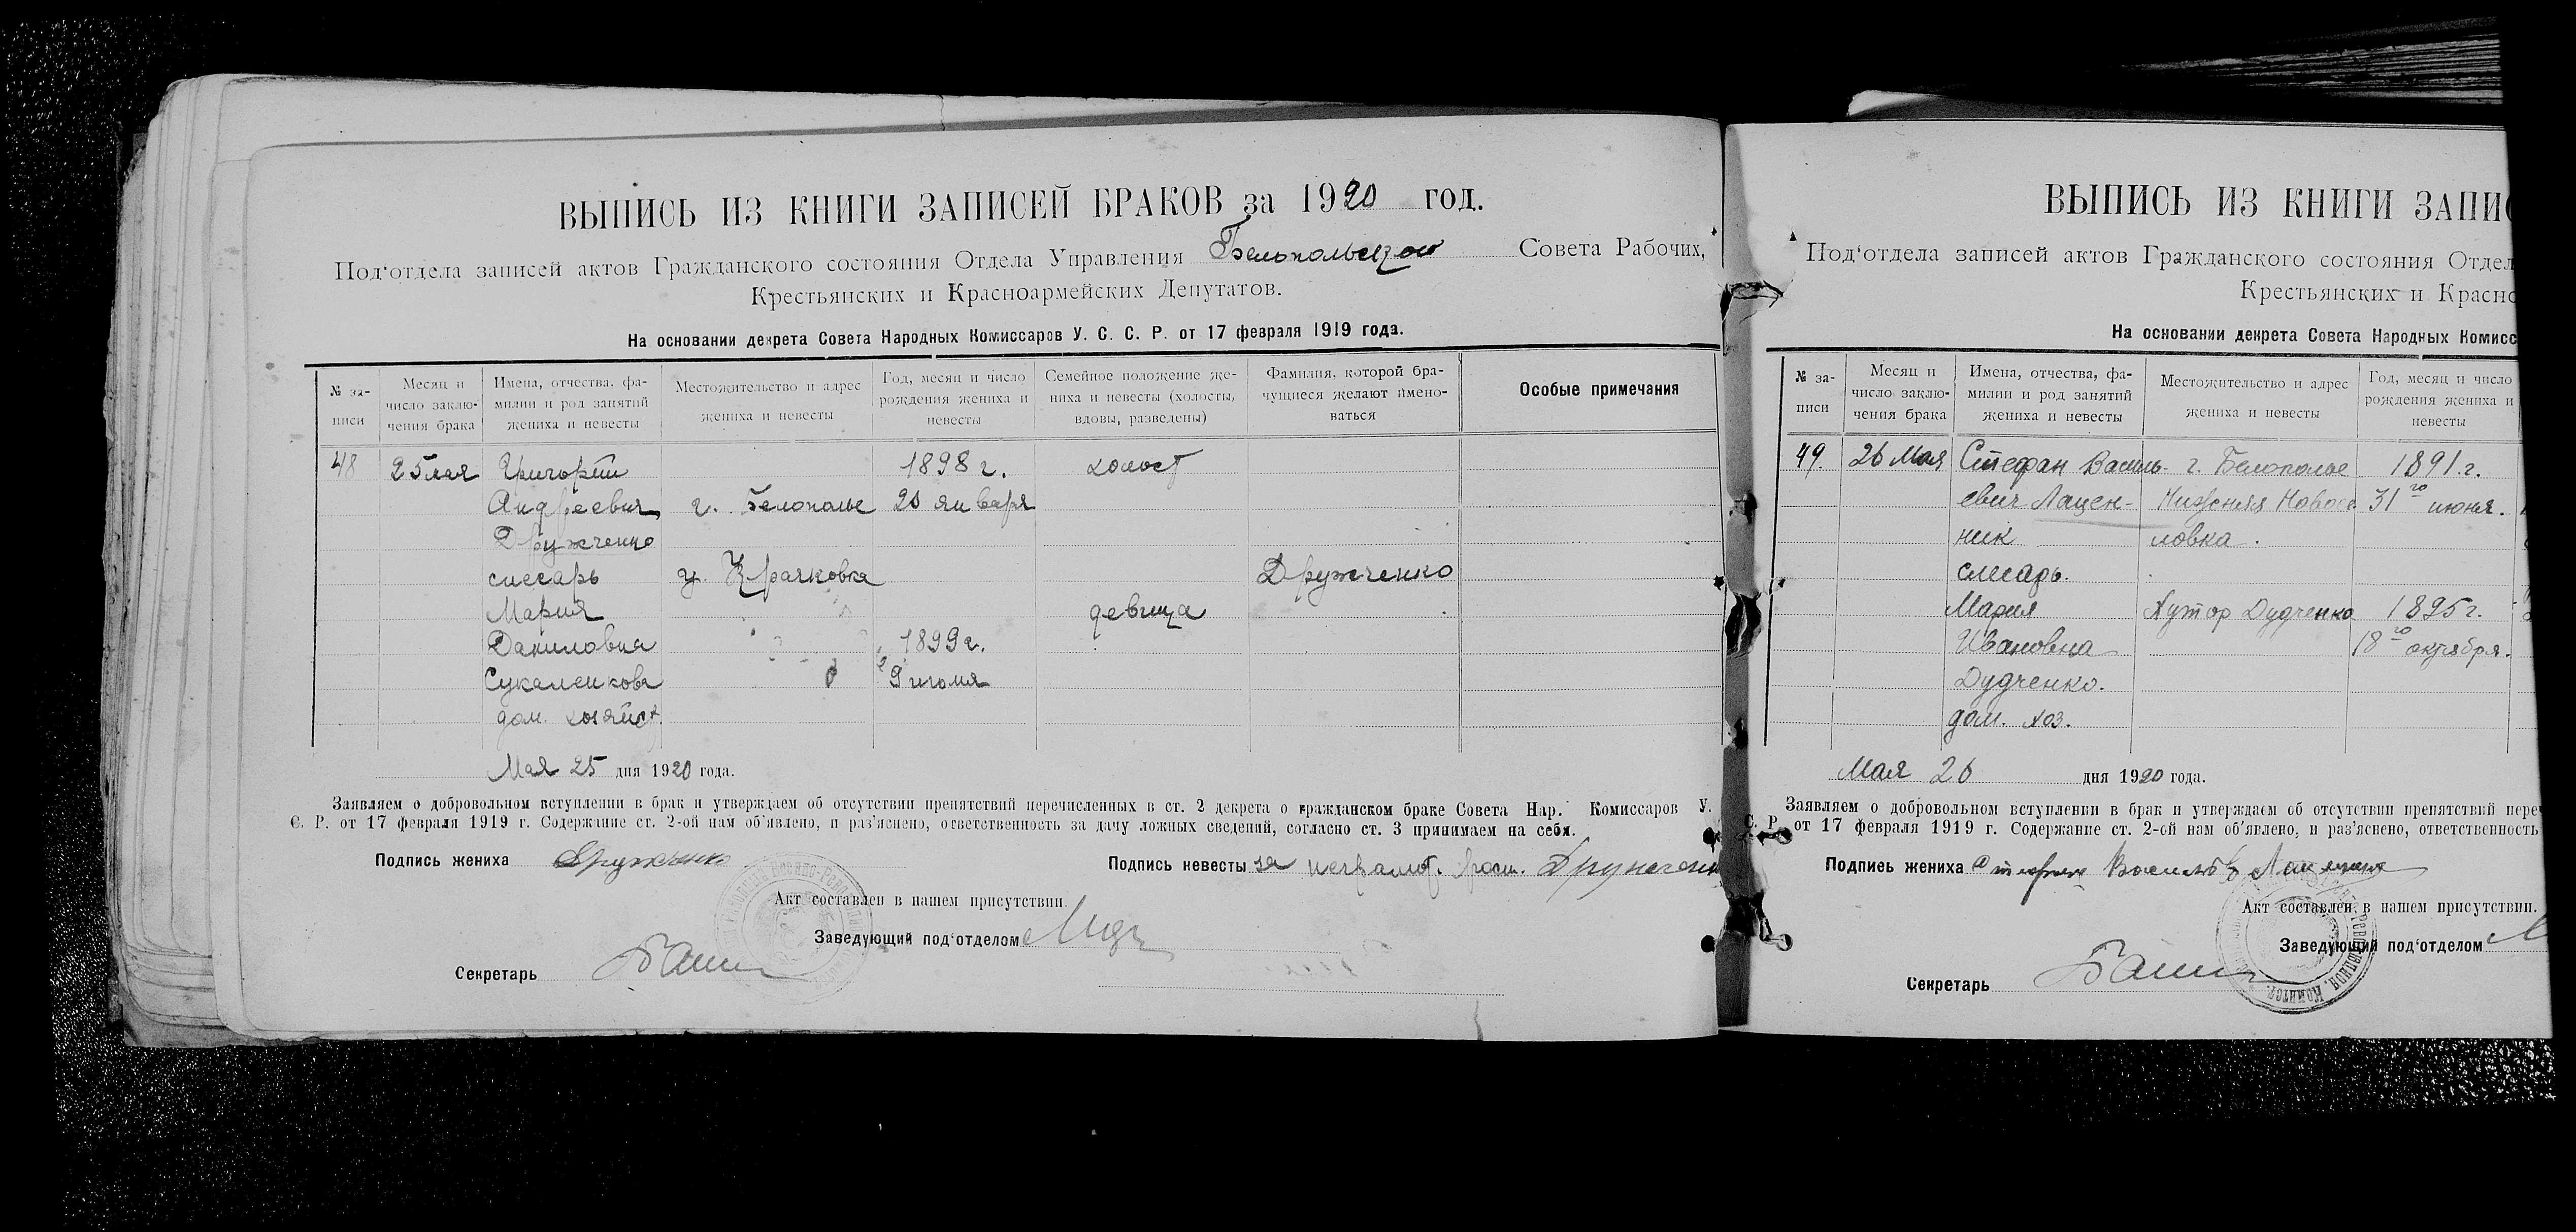 ВЫПИСЬ ИЗ КНИГИ ЗАПИСЕЙ БРАКОВ за 1920 год.
Под‘отдела записей актов Гражданского состояния Отдела Управления Совета Рабочих,
Крестьянских и Красноармейских Депутатов.
На основании декрета Совета Народных Комиссаров У. С. С. Р. от 17 февраля 1919 года.
№ за-
писи
Месяц и
число заклю-
чения брака
Имена, отчества, фа-
милии и род занятий
жениха и невесты
Местожительство и адрес
жениха и невесты
Год, месяц и число
рождения жениха и
невесты
Семейное положение же-
ниха и невесты (холосты,
вдовы, разведены)
Фамилия, которой бра-
чущиеся желают имено-
ваться
Особые примечания
48 25 мая Григорий 1898 г. холост
Андреевич г. Белополье 25 января
Дружченко
слесарь Дружченко
Мария девица
Даниловна 1899 г.
Сукаленкова 9 июля
дом. хозяйст.
Мая 25 дня 1920 года.
Заявляем о добровольном вступлении в брак и утверждаем об отсутствии препятствий перечисленных в ст. 2 декрета о гражданском браке Совета Нар. Комиссаров У.
С. Р. от 17 февраля 1919 г. Содержание ст. 2-ой нам об‘явлено, и раз‘яснено, ответственность за дачу ложных сведений, согласно ст. 3 принимаем на себя.
Подпись жениха Дружченко Подпись невесты за неграмот. росп.
Акт составлен в нашем присутствии.
Заведующий под‘отделом
Секретарь
ВЫПИСЬ ИЗ КНИГИ ЗАПИС
Под‘отдела записей актов Гражданского состояния Отдел
Крестьянских и Красно
На основании декрета Совета Народных Комисс
№ за-
писи
Месяц и
число заклю-
чения брака
Имена, отчества, фа-
милии и род занятий
жениха и невесты
Местожительство и адрес
жениха и невесты
Год, месяц и число
рождения жениха и
невесты
49. 26 Мая Стефан Василь- г. Белополье 1891 г.
евич Лацен- Нижняя Новосе 31го июня.
ник ловка.
слесарь.
Мария Хутор Дудченко 1895 г.
Ивановна 18го октября.
Дудченко.
дом. хоз.
Мая 26 дня 1920 года.
Заявляем о добровольном вступлении в брак и утверждаем об отсутствии препятствий переч
С. Р. от 17 февраля 1919 г. Содержание ст. 2-ой нам об‘явлено, и раз‘яснено, ответственность
Подпись жениха
Акт составлен в нашем присутствии.
Заведующий под‘отделом
Секретарь